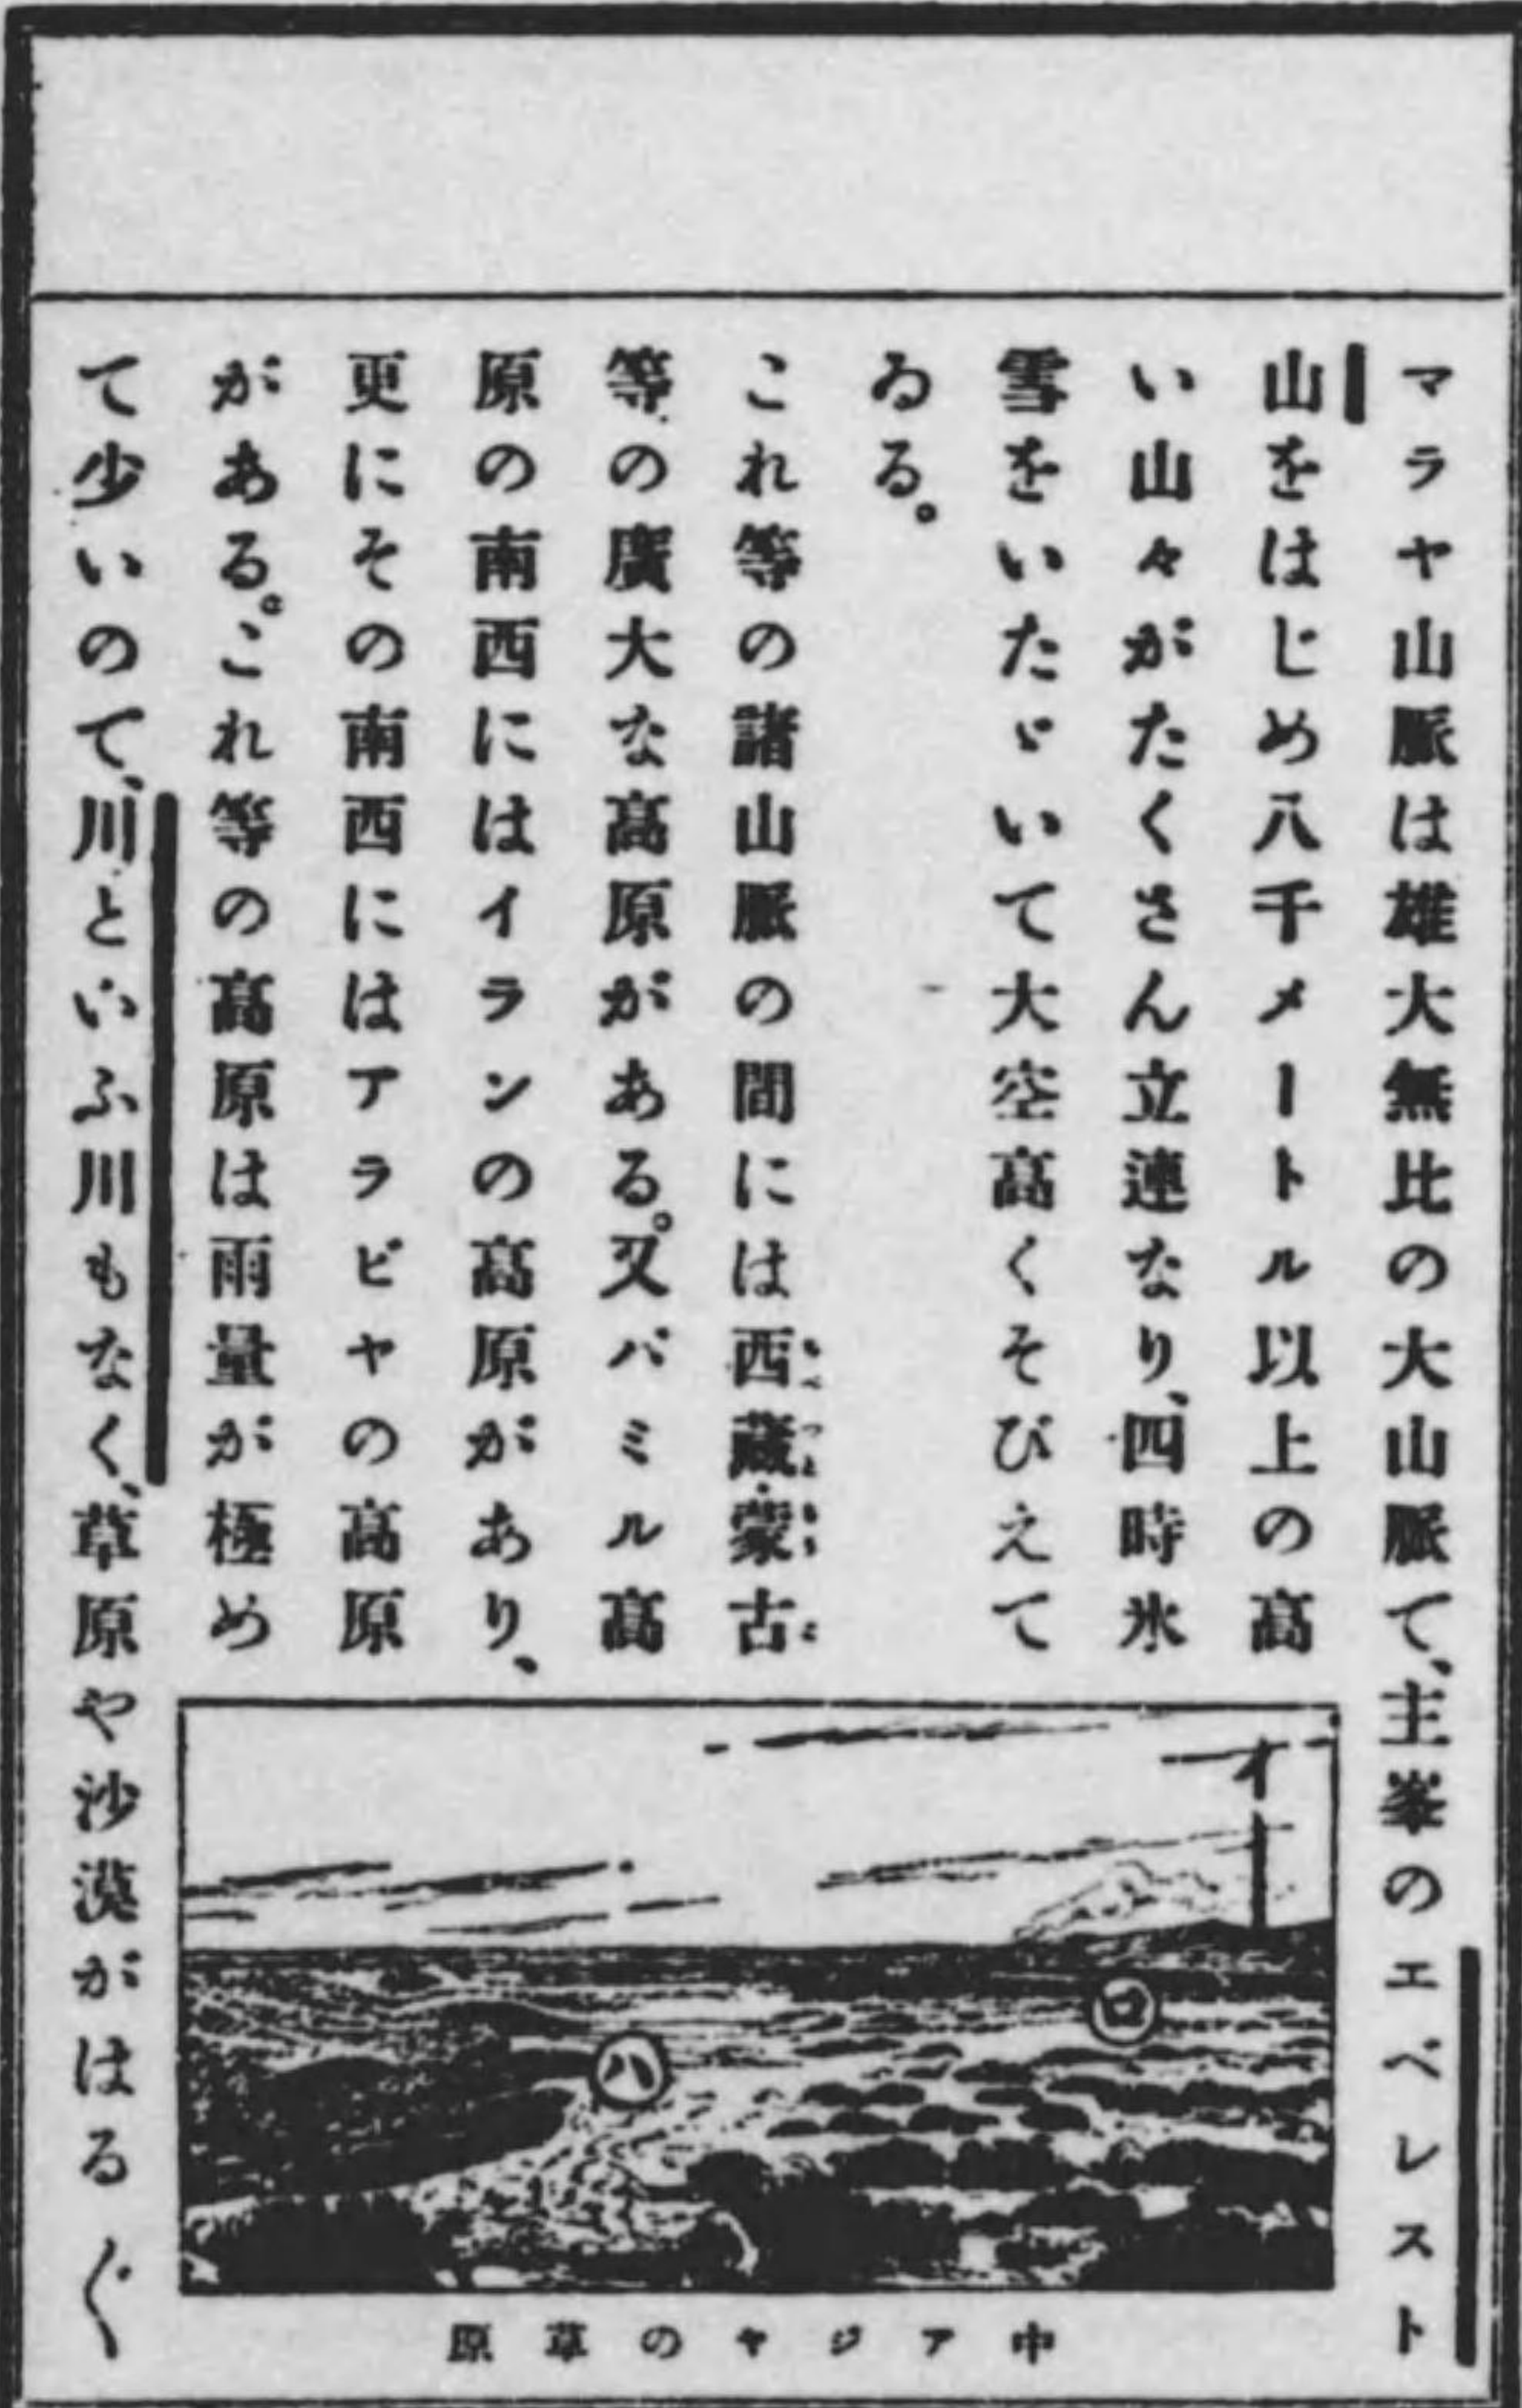 マラヤ山脈は雄大無比の大山脈で、主峯のエベレスト
山をはじめ八千メートル以上の高
い山々がたくさん立連なり、四時氷
雪をいたゞいて大空高くそびえて
ゐる。
これ等の諸山脈の間には西蔵・蒙古
等の廣大な高原がある。又パミル高
原の南西にはイランの高原があり、
更にその南西にはアラビヤの高原
がある。これ等の高原は雨量が極め
て少いので、川といふ川もなく、草原や沙漠がはる〴〵
イ
ロ
ハ
中アジヤの草原